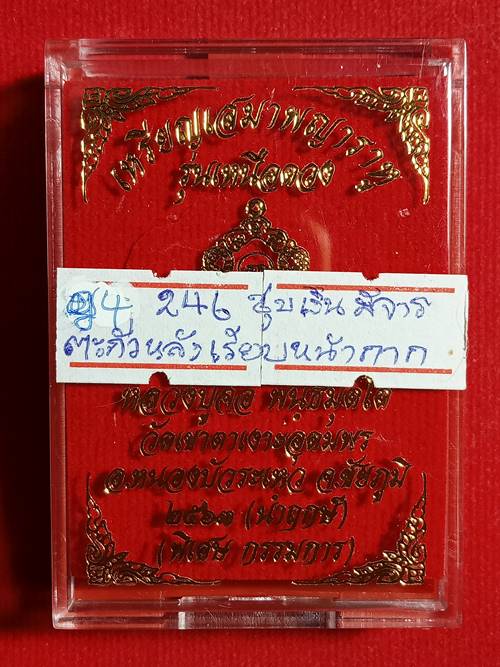 เหรียญเสมาพญาราหู
รุ่นเหนือดวง
246 ชุบเงิน มีจาร
ตะกั่วหลังเรียบหน้ากาก
หลวงปู่คอ พนฺธมุตฺโต
วัดเขาตาเงาะอุดมพร
อ.หนองบัวระเหว จ.ชัยภูมิ
๒๕๖๓ (นำฤกษ์)
(พิเศษ กรรมการ)